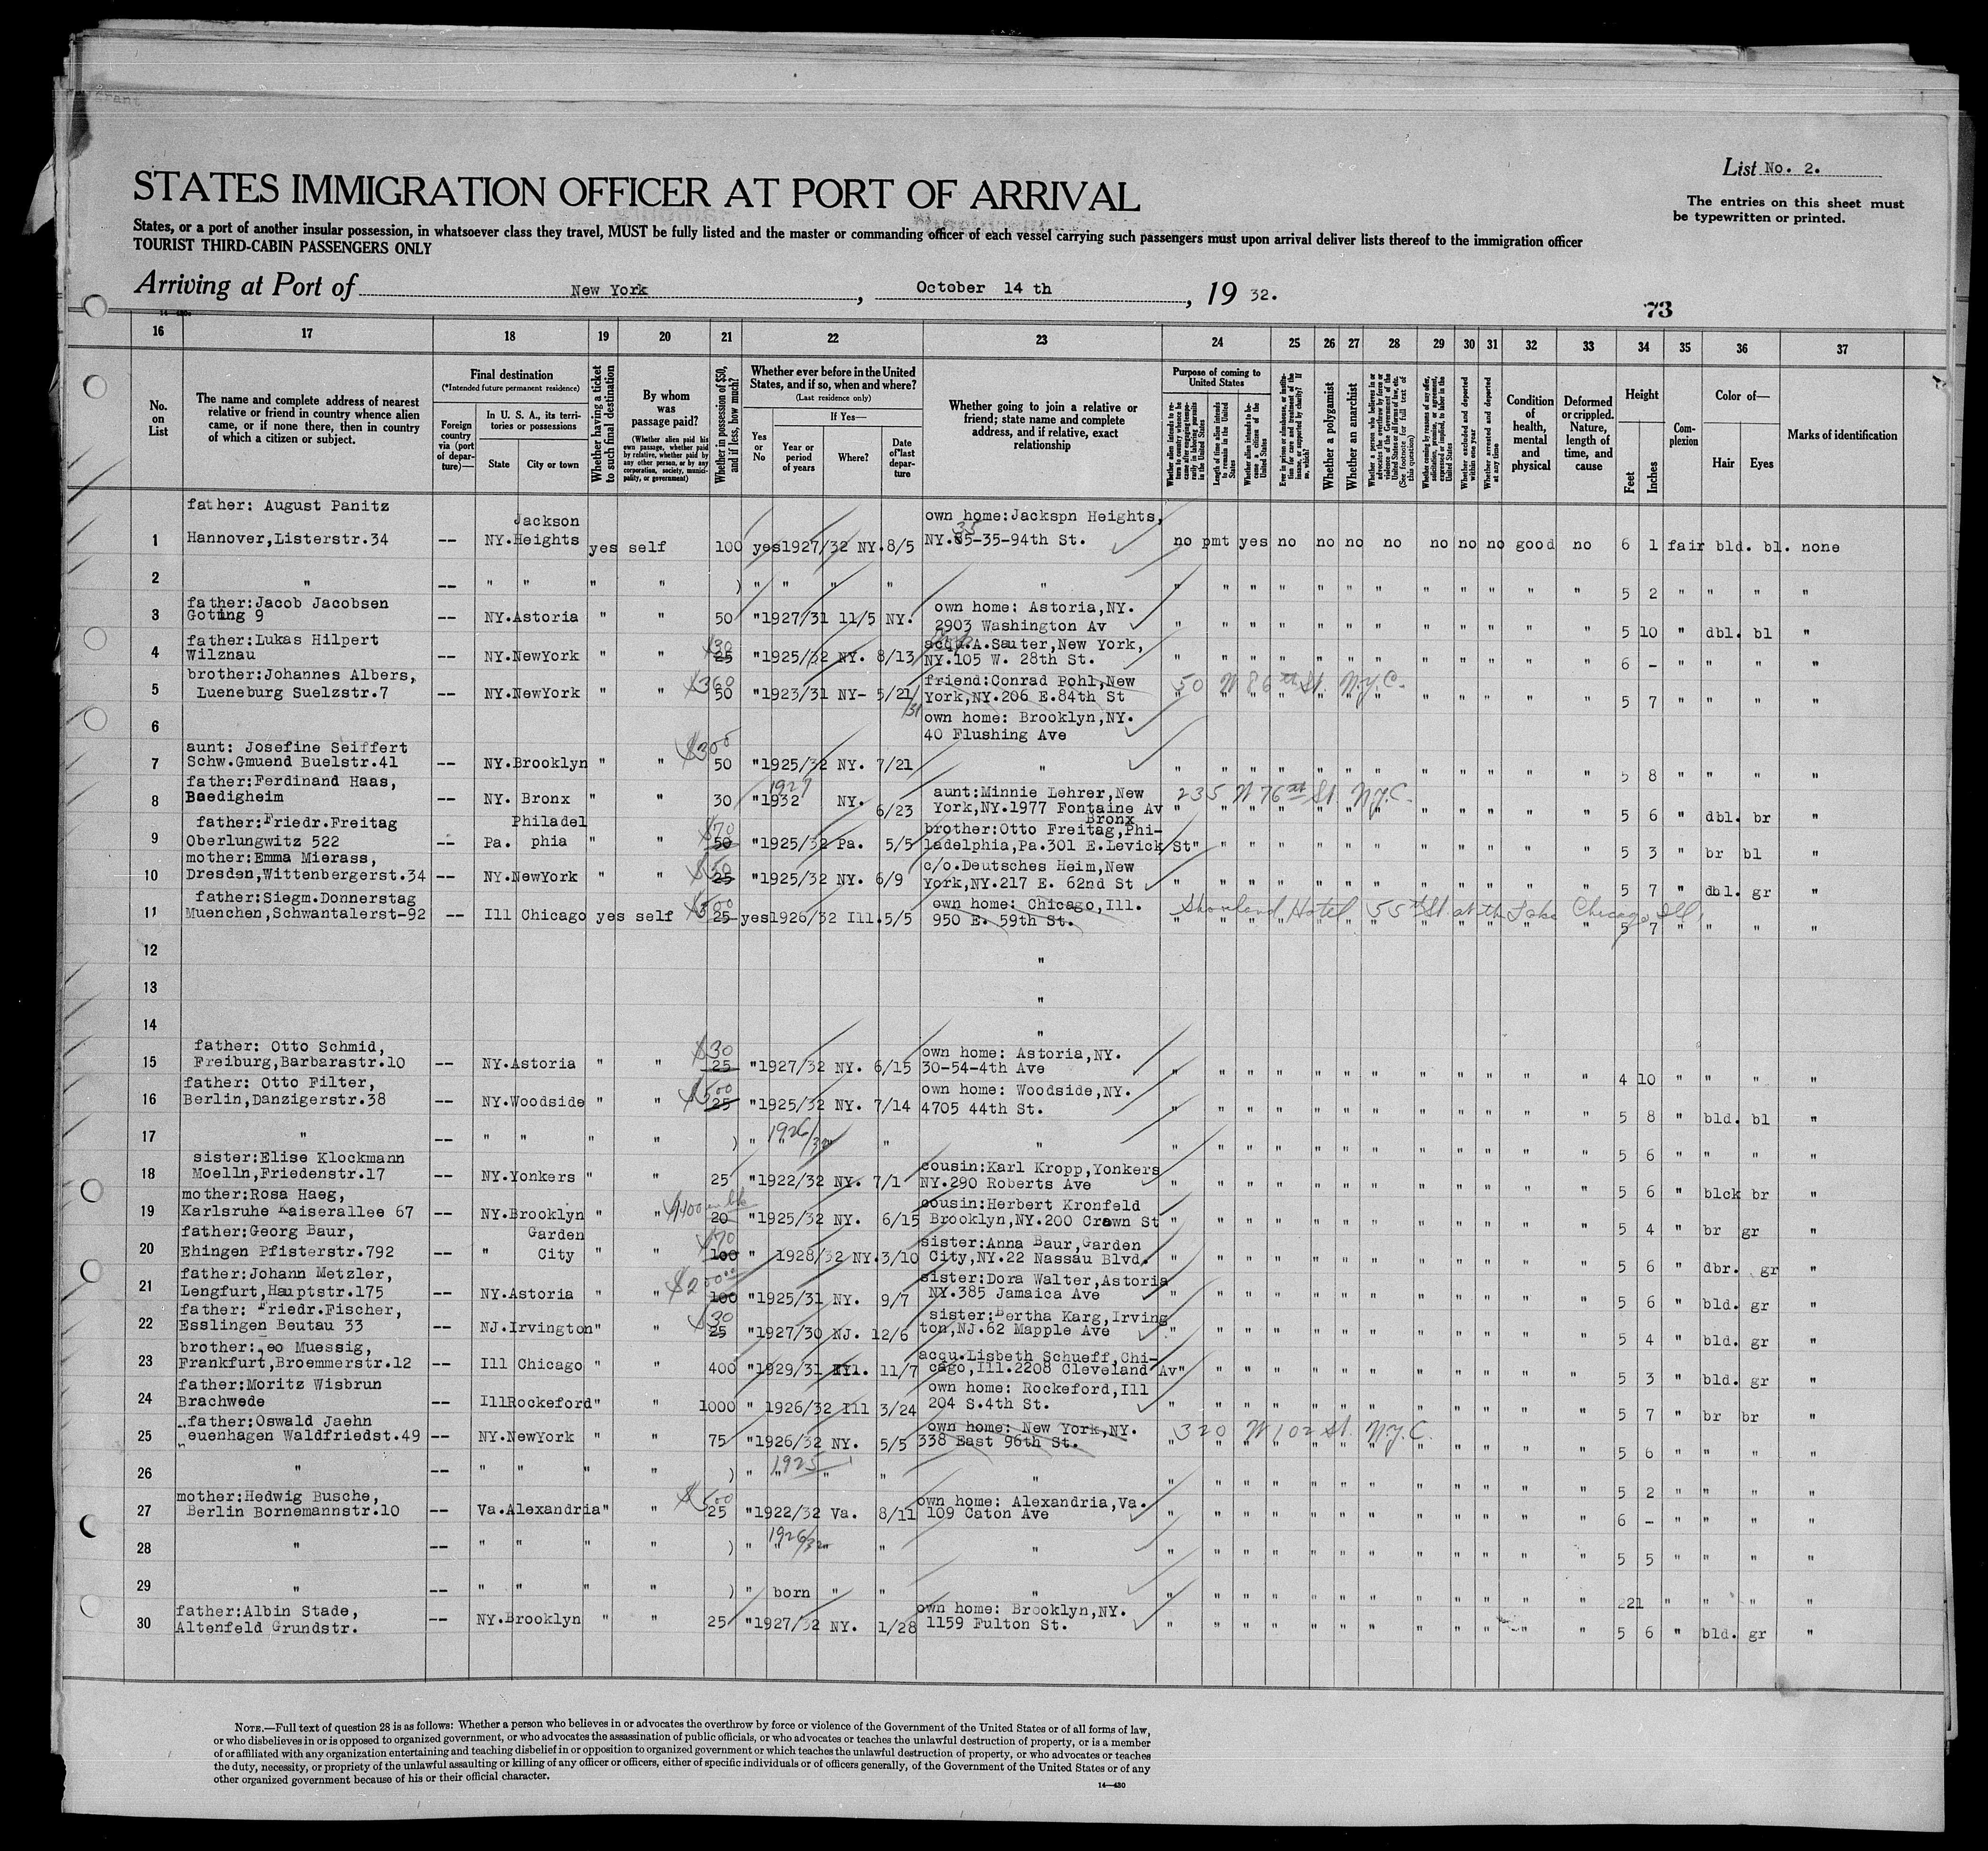 List No. 2.
STATES IMMIGRATION OFFICER AT PORT OF ARRIVAL
The entries on this sheet must
be typewritten or printed.
States, or a port of another insular possession, in whatsoever class they travel, MUST be fully listed and the master or commanding officer of each vessel carrying such passengers must upon arrival deliver lists thereof to the immigration officer
TOURIST THIRD-CABIN PASSENGERS ONLY
Arriving at Port of New York, October 14 th, 19 32.
73
16 17 18 19 20 21 22 23 24 25 26 27 28 29 30 31 32 33 34 35 36 37
No. on List
The name and complete address of nearest relative or friend in country whence alien came, or if none there, then in country of which a citizen or subject.
Final destination
(*Intended future permanent residence)
Foreign country via (port of departure)—
In U. S. A., its territories or possessions
State
City or town
Whether having a ticket to such final destination
By whom was passage paid?
(Whether alien paid his own passage, whether paid by relative, whether paid by any other person, or by any corporation, society, municipality, or government)
Whether in possession of $50, and if less, how much?
Whether ever before in the United States, and if so, when and where?
(Last residence only)
Yes or No
If Yes—
Year or period of years
Where?
Date of last departure
Whether going to join a relative or friend; state name and complete address, and if relative, exact relationship
Purpose of coming to United States
Whether alien intends to return to country whence he came after engaging temporarily in laboring pursuits in the United States
Length of time alien intends to remain in the United States
Whether alien intends to become a citizen of the United States
Ever in prison or almshouse, or institution for care and treatment of the insane, or supported by charity? If so, which?
Whether a polygamist
Whether an anarchist
Whether a person who believes in or advocates the overthrow by force or violence of the Government of the United States or all forms of law, etc. (See footnote for full text of this question)
Whether coming by reason of any offer, solicitation, promise, or agreement, expressed or implied, to labor in the United States
Whether excluded and deported within one year
Whether arrested and deported at any time
Condition of health, mental and physical
Deformed or crippled. Nature, length of time, and cause
Height
Feet
Inches
Complexion
Color of—
Hair
Eyes
Marks of identification
father: August Panitz Jackson own home:Jackspn Heights,
1 Hannover,Listerstr.34 -- NY. Heights yes self 100 yes1927/32 NY.8/5 NY.85-35-94th St. no pmt yes no no no no no no no good no 6 1 fair bld. bl. none
35
2 " -- " " " " ) " " " " " " " " " " " " " " " " " 5 2 " " " "
father:Jacob Jacobsen own home: Astoria,NY.
3 Gotting 9 -- NY.Astoria " " 50 "1927/31 11/5 NY. 2903 Washington Av " " " " " " " " " " " " 5 10 " dbl. bl "
father:Lukas Hilpert $30 acqu.A.Sauter,New York,
4 Wilznau -- NY.NewYork " " 25 "1925/32 NY. 8/13 NY.105 W. 28th St. " " " " " " " " " " " " 6 - " " " "
brother:Johannes Albers, $360 friend:Conrad Pohl,New 50 W 86th St. N.Y.C.
5 Lueneburg Suelzstr.7 -- NY.NewYork " " 50 "1923/31 NY- 5/21/31 York,NY.206 E.84th St " " " " " " " " " " " " 5 7 " " " "
own home: Brooklyn,NY.
6 40 Flushing Ave
aunt: Josefine Seiffert $300
7 Schw.Gmuend Buelstr.41 -- NY.Brooklyn " " 50 "1925/32 NY. 7/21 " " " " " " " " " " " " " 5 8 " " " "
father:Ferdinand Haas, 1927 aunt:Minnie Lehrer,New 235 W 76th St. N.Y.C.
8 Boedigheim -- NY. Bronx " " 30 "1932 NY. 6/23 York,NY.1977 Fontaine Av Bronx " " " " " " " " " " " " 5 6 " dbl. br "
father:Friedr.Freitag Philadel $70 brother:Otto Freitag,Phi-
9 Oberlungwitz 522 -- Pa. phia " " 50 "1925/32 Pa. 5/5 ladelphia,Pa.301 E.Levick St" " " " " " " " " " " " 5 3 " br bl "
mother:Emma Mierass, $50 c/o.Deutsches Heim,New
10 Dresden,Wittenbergerst.34 -- NY.NewYork " " 25 "1925/32 NY. 6/9 York,NY.217 E. 62nd St " " " " " " " " " " " " 5 7 " dbl. gr "
father:Siegm.Donnerstag $500 own home: Chicago,Ill. Shoreland Hotel 55th St. at the Lake Chicago, Ill.
11 Muenchen,Schwantalerst-92 -- Ill Chicago yes self 25 yes1926/32 Ill.5/5 950 E. 59th St. " " " " " " " " " " " " 5 7 " " " "
12 "
13 "
14 "
father: Otto Schmid, $30 own home: Astoria,NY.
15 Freiburg,Barbarastr.10 -- NY.Astoria " " 25 "1927/32 NY. 6/15 30-54-4th Ave " " " " " " " " " " " " 4 10 " " " "
father: Otto Filter, $500 own home: Woodside,NY.
16 Berlin,Danzigerstr.38 -- NY.Woodside " " 25 "1925/32 NY. 7/14 4705 44th St. " " " " " " " " " " " " 5 8 " bld. bl "
17 " -- " " " " ) " 1926/32 " " " " " " " " " " " " " " 5 6 " " " "
sister:Elise Klockmann cousin:Karl Kropp,Yonkers
18 Moelln,Friedenstr.17 -- NY.Yonkers " " 25 "1922/32 NY. 7/1 NY.290 Roberts Ave " " " " " " " " " " " " 5 6 " blck br "
mother:Rosa Haeg, cousin:Herbert Kronfeld
19 Karlsruhe Kaiserallee 67 -- NY.Brooklyn " " 20 "1925/32 NY. 6/15 Brooklyn,NY.200 Crown St " " " " " " " " " " " " 5 4 " br gr "
father:Georg Baur, Garden $70 sister:Anna Baur,Garden
20 Ehingen Pfisterstr.792 -- " City " " 100 " 1928/32 NY.3/10 City,NY.22 Nassau Blvd. " " " " " " " " " " " " 5 6 " dbr. gr "
father:Johann Metzler, $200.00 sister:Dora Walter,Astoria
21 Lengfurt,Hauptstr.175 -- NY.Astoria " " 100 "1925/31 NY. 9/7 NY.385 Jamaica Ave " " " " " " " " " " " " 5 6 " bld. gr "
father: Friedr.Fischer, $30 sister:Bertha Karg,Irving
22 Esslingen Beutau 33 -- NJ.Irvington" " 25 "1927/30 NJ. 12/6 ton,NJ.62 Mapple Ave " " " " " " " " " " " " 5 4 " bld. gr "
brother: eo Muessig, acqu.Lisbeth Schueff,Chi-
23 Frankfurt,Broemmerstr.12 -- Ill Chicago " " 400 "1929/31 Ill. 11/7 cago,Ill.2208 Cleveland Av" " " " " " " " " " " " 5 3 " bld. gr "
father:Moritz Wisbrun own home: Rockeford,Ill
24 Brachwede -- IllRockeford" " 1000 " 1926/32 Ill 3/24 204 S.4th St. " " " " " " " " " " " " 5 7 " br br "
father:Oswald Jaehn own home: New York,NY. 320 W 102 St. N.Y.C.
25 euenhagen Waldfriedst.49 -- NY.NewYork " " 75 "1926/32 NY. 5/5 338 East 96th St. " " " " " " " " " " " " 5 6 " " " "
26 " -- " " " " ) " 1925 " " " " " " " " " " " " " " " 5 2 " " " "
mother:Hedwig Busche, $500 own home: Alexandria,Va.
27 Berlin Bornemannstr.10 -- Va.Alexandria" " 25 "1922/32 Va. 8/11 109 Caton Ave " " " " " " " " " " " " 6 - " " " "
28 " -- " " " " ) " 1926/32 " " " " " " " " " " " " " " " 5 5 " " " "
29 " -- " " " " ) " born " " " " " " " " " " " " " " " 221 " " " "
father:Albin Stade, own home: Brooklyn,NY.
30 Altenfeld Grundstr. -- NY.Brooklyn " " 25 "1927/32 NY. 1/28 1159 Fulton St. " " " " " " " " " " " " 5 6 " bld. gr "
NOTE.—Full text of question 28 is as follows: Whether a person who believes in or advocates the overthrow by force or violence of the Government of the United States or of all forms of law,
or who disbelieves in or is opposed to organized government, or who advocates the assassination of public officials, or who advocates or teaches the unlawful destruction of property, or is a member
of or affiliated with any organization entertaining and teaching disbelief in or opposition to organized government or which teaches the unlawful destruction of property, or who advocates or teaches
the duty, necessity, or propriety of the unlawful assaulting or killing of any officer or officers, either of specific individuals or of officers generally, of the Government of the United States or of any
other organized government because of his or their official character.
14—430